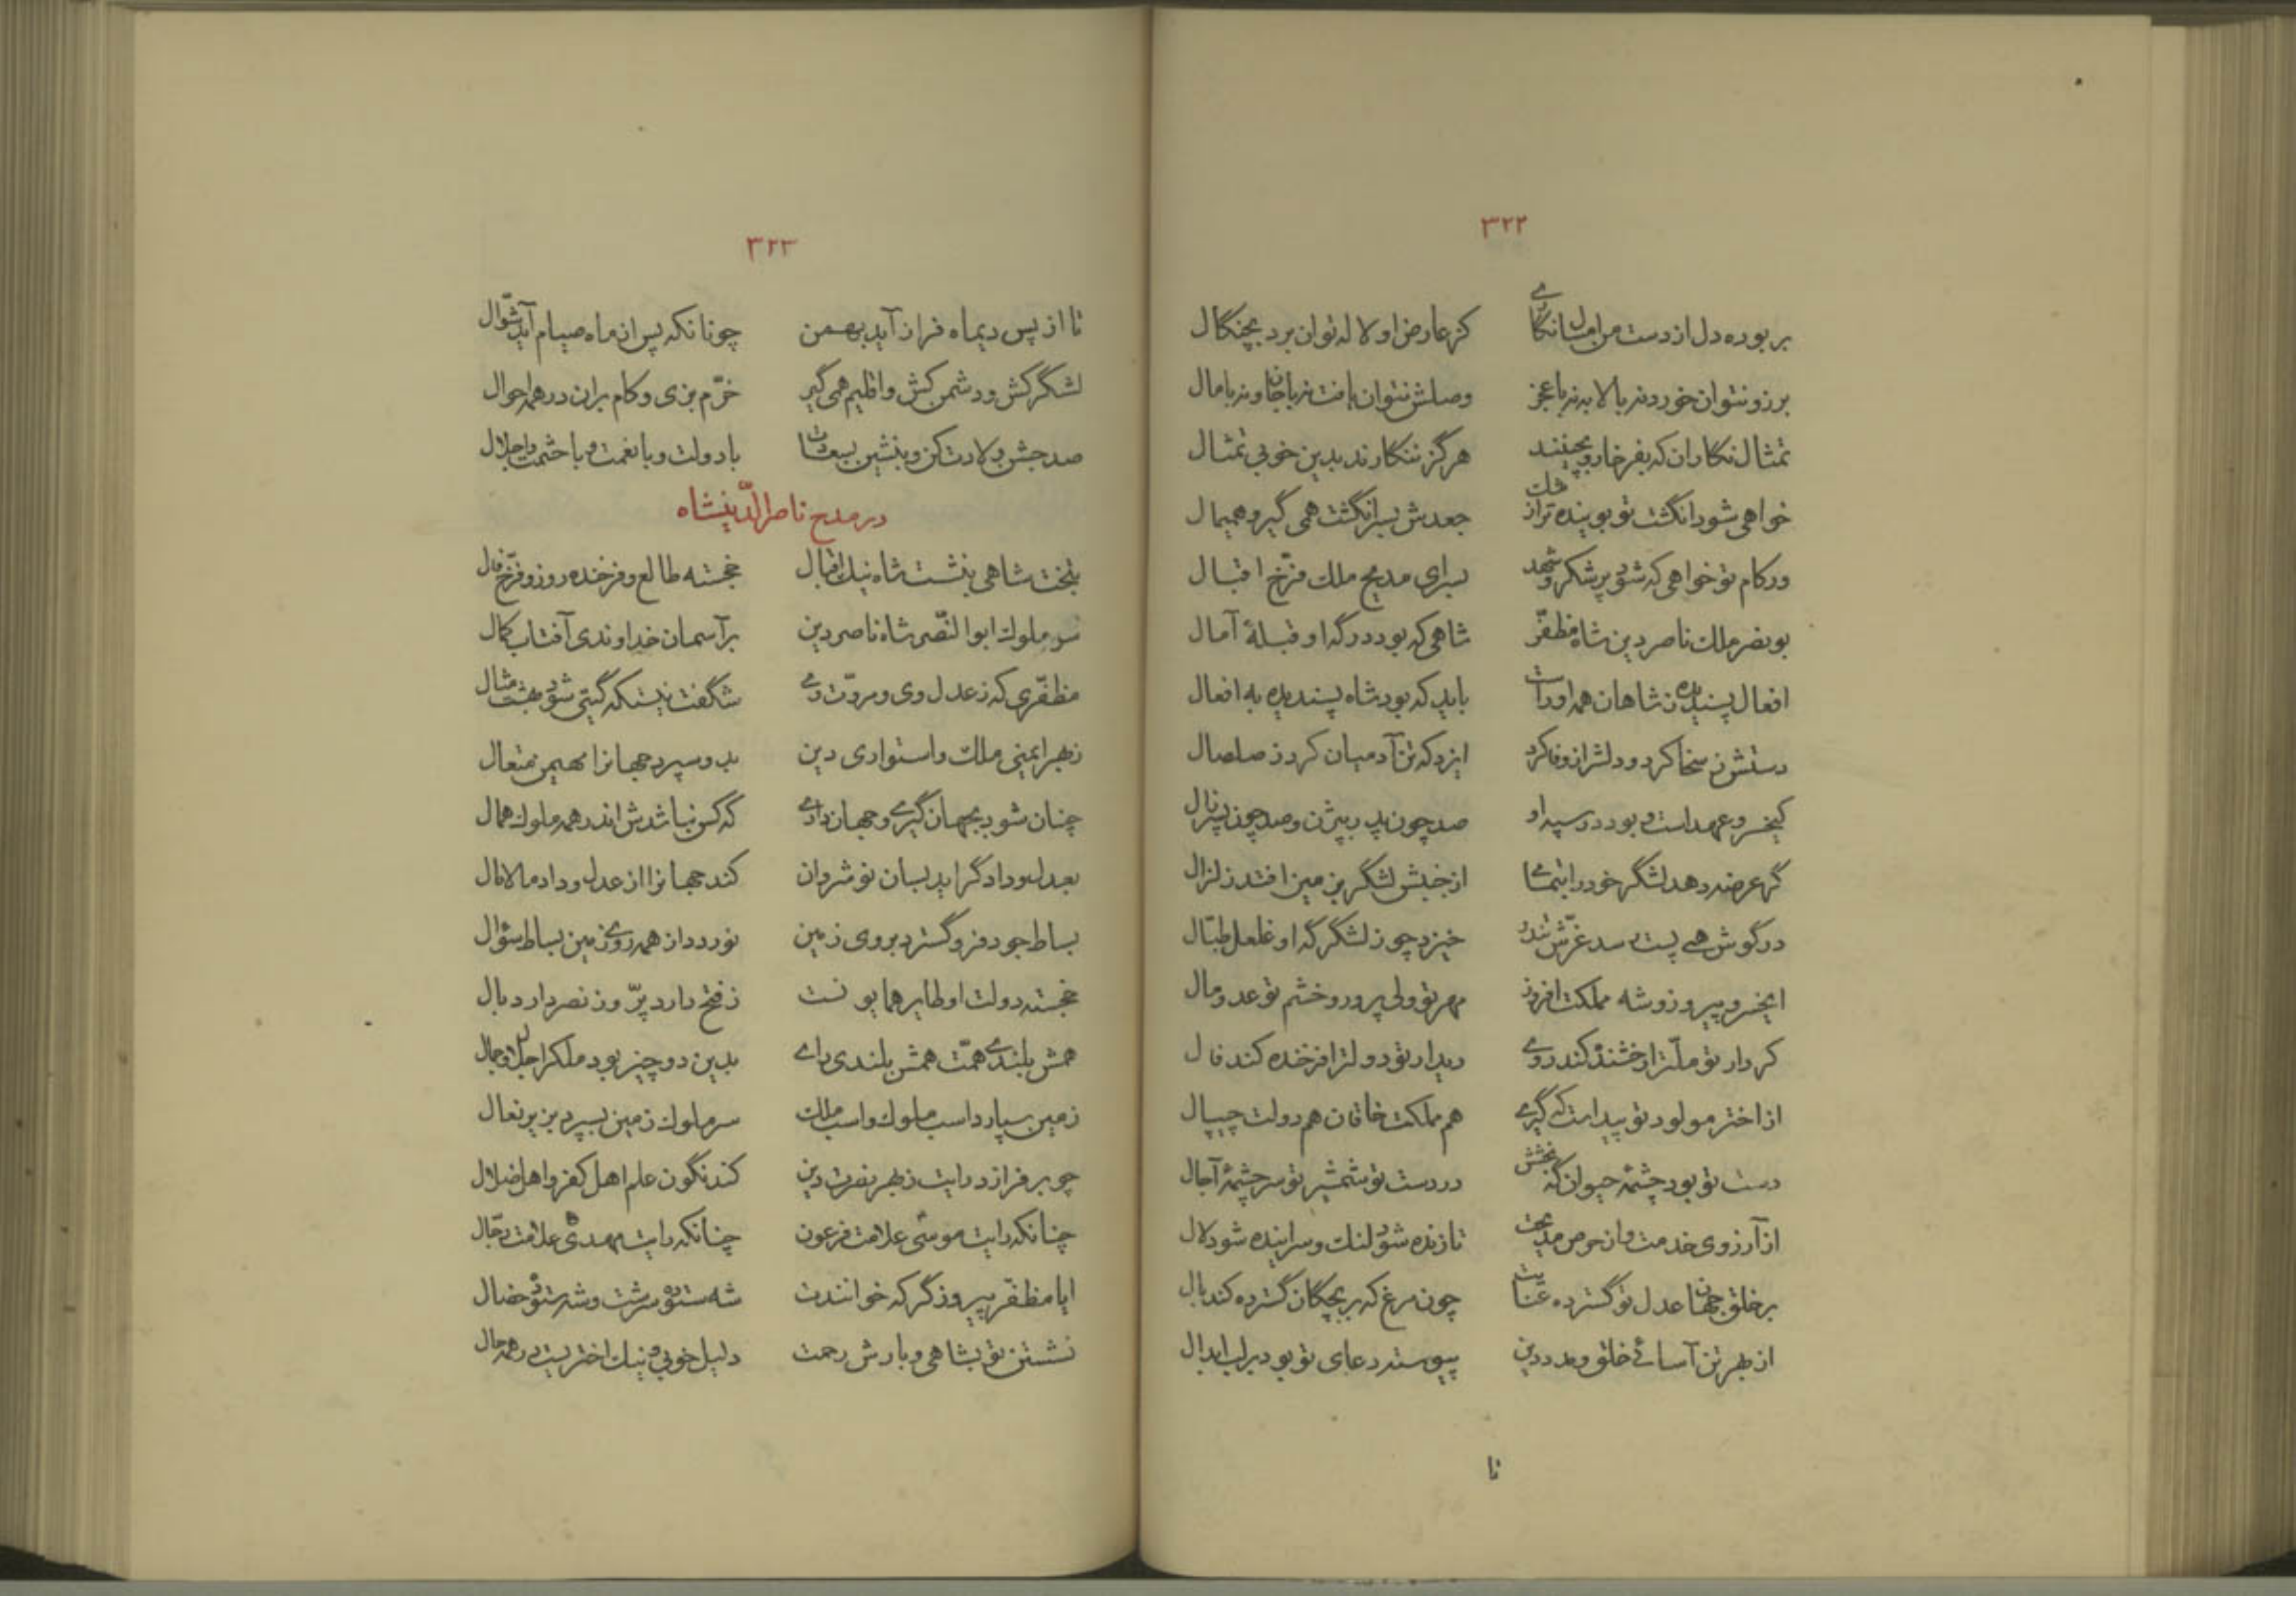 ۳۲۲
بربوده دل از دست من امسال نگاری کز عارض او لاله توان برد بچنگال
برزو نتوان خورد نه بالابه نه با عجز وصلش نتوان یافت نه با جان و نه با مال
تمثال نگاران که بفرخار و بچینند هرگز ننگارند بدین خوبی تمثال
خواهی شود انگشت تو بوینده تر از مشک جعدش بسر انگشت همی گیر و همیمال
ور کام تو خواهی که شود پر شکر و شهد بسرای مدیح ملک فرّخ اقبال
بو نصر ملک ناصر دین شاه مظفّر شاهی که بود درگه او قبلهٔ آمال
افعال پسندیده ز شاهان همه اوراست باید که بود شاه پسندیده به افعال
دستش ز سخا کرد و دلش از وفا کرد ایزد که تن آدمیان کرد ز صلصال
کیخسرو عهد است و بود در سپه او صد چون پدر بیژن و صد چون پسر زال
گر عرضه دهد لشگر خود را بتماشا از جنبش لشگر بزمین افتد زلزال
در گوش همی پست رسد غرّش تندر خیزد چو ز لشگرگه او غلغل طبّال
ایخسرو پیروز و شه مملکت افروز مهر تو ولی پرور و خشم تو عدو مال
کردار تو ملّت را رخشنده کند روی دیدار تو دولت را فرخنده کند فال
از اختر مولود تو پیداست که گیری هم مملکت خاقان هم دولت چیپال
دست تو بود چشمهٔ حیوان گه بخشش در دست تو شمشیر تو سرچشمهٔ آجال
از آرزوی خدمت و از حرص مدیحت تا زنده شود لنگ و سراینده شود لال
بر خلق جهان عدل تو گسترده عنایت چون مرغ که بر بچگان گسترده کند بال
از بهر تن آسائی خلق و مدد دین پیوسته دعای تو بود بر لب ابدال
تا
۳۲۳
تا از پس دیماه فراز آید بهمن چونانکه پس از ماه صیام آید شوّال
لشگر کش و دشمن کش و اقلیم همی گیر خرّم بزی و کام بران در همه احوال
صد جشن ولادت کن و بنشین بسعادت با دولت و با نعمت و با حشمت و اجلال
در مدح ناصرالدّینشاه
بتخت شاهی بنشست شاه نیک اقبال خجسته طالع و فرخنده روز و فرّخ فال
سر ملوک ابوالنّصر شاه ناصر دین بر آسمان خداوندی آفتاب کمال
مظفّری که ز عدل وی و مروّت وی شگفت نیست که گیتی شود بهشت مثال
ز بهر ایمنی ملک و استواری دین بدو سپرد جهانرا مهیمن متعال
چنان شود بجهان گیری و جهان داری که کس نباشدش اندر همه ملوک همال
بعدل و داد گراید بسان نوشروان کند جهانرا از عدل و داد مالامال
بساط جود فرو گسترد بروی زمین نوردد از همه روی زمین بساط سؤال
خجسته دولت او طایر همایونست ز فتح دارد پرّ و ز نصر دارد بال
همش بلندی همّت همش بلندی رای بدین دو چیز بود ملک را جلال و جمال
زمین سپارد اسب ملوک و اسب ملک سر ملوک زمین بسپرد بزیر نعال
چو بر فرازد رایت ز بهر نصرت دین کند نگون علم اهل کفر و اهل ضلال
چنانکه رایت موسی علامت فرعون چنانکه رایت مهدی علامت دجّال
ایا مظفّر پیروزگر که خوانندت شه ستوده سرشت و شه ستوده خصال
نشستن تو بشاهی و بارش رحمت دلیل خوبی و نیک اختریست در همه حال